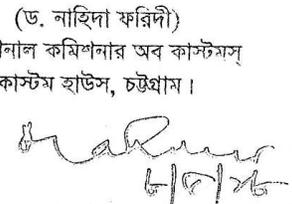 (ড. নাহিদা ফরিদী)
নাল কমিশনার অব কাস্টমস্
কাস্টম হাউস, চট্টগ্রাম।